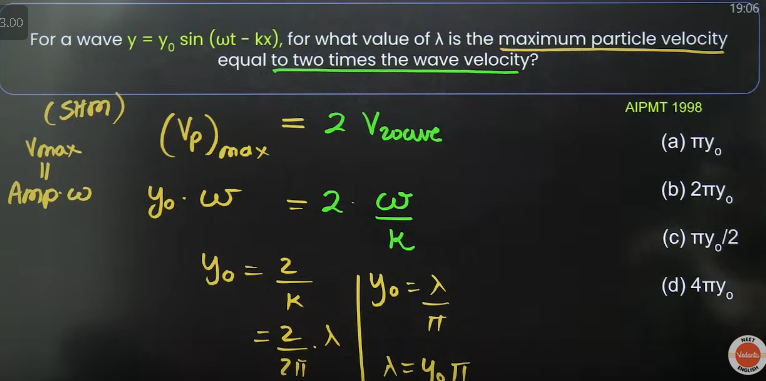 19:06
3.00
For a wave y = y₀ sin (ωt - kx), for what value of λ is the maximum particle velocity
equal to two times the wave velocity?
AIPMT 1998
(a) πy₀
(b) 2πy₀
(c) πy₀/2
(d) 4πy₀
(SHM)
Vmax
=
Amp·ω
(Vp)max = 2 Vwave
y₀·ω = 2·ω/k
y₀ = 2/k
= 2/2π·λ
y₀ = λ/π
λ = y₀π
NEET
Vedantu
ENGLISH